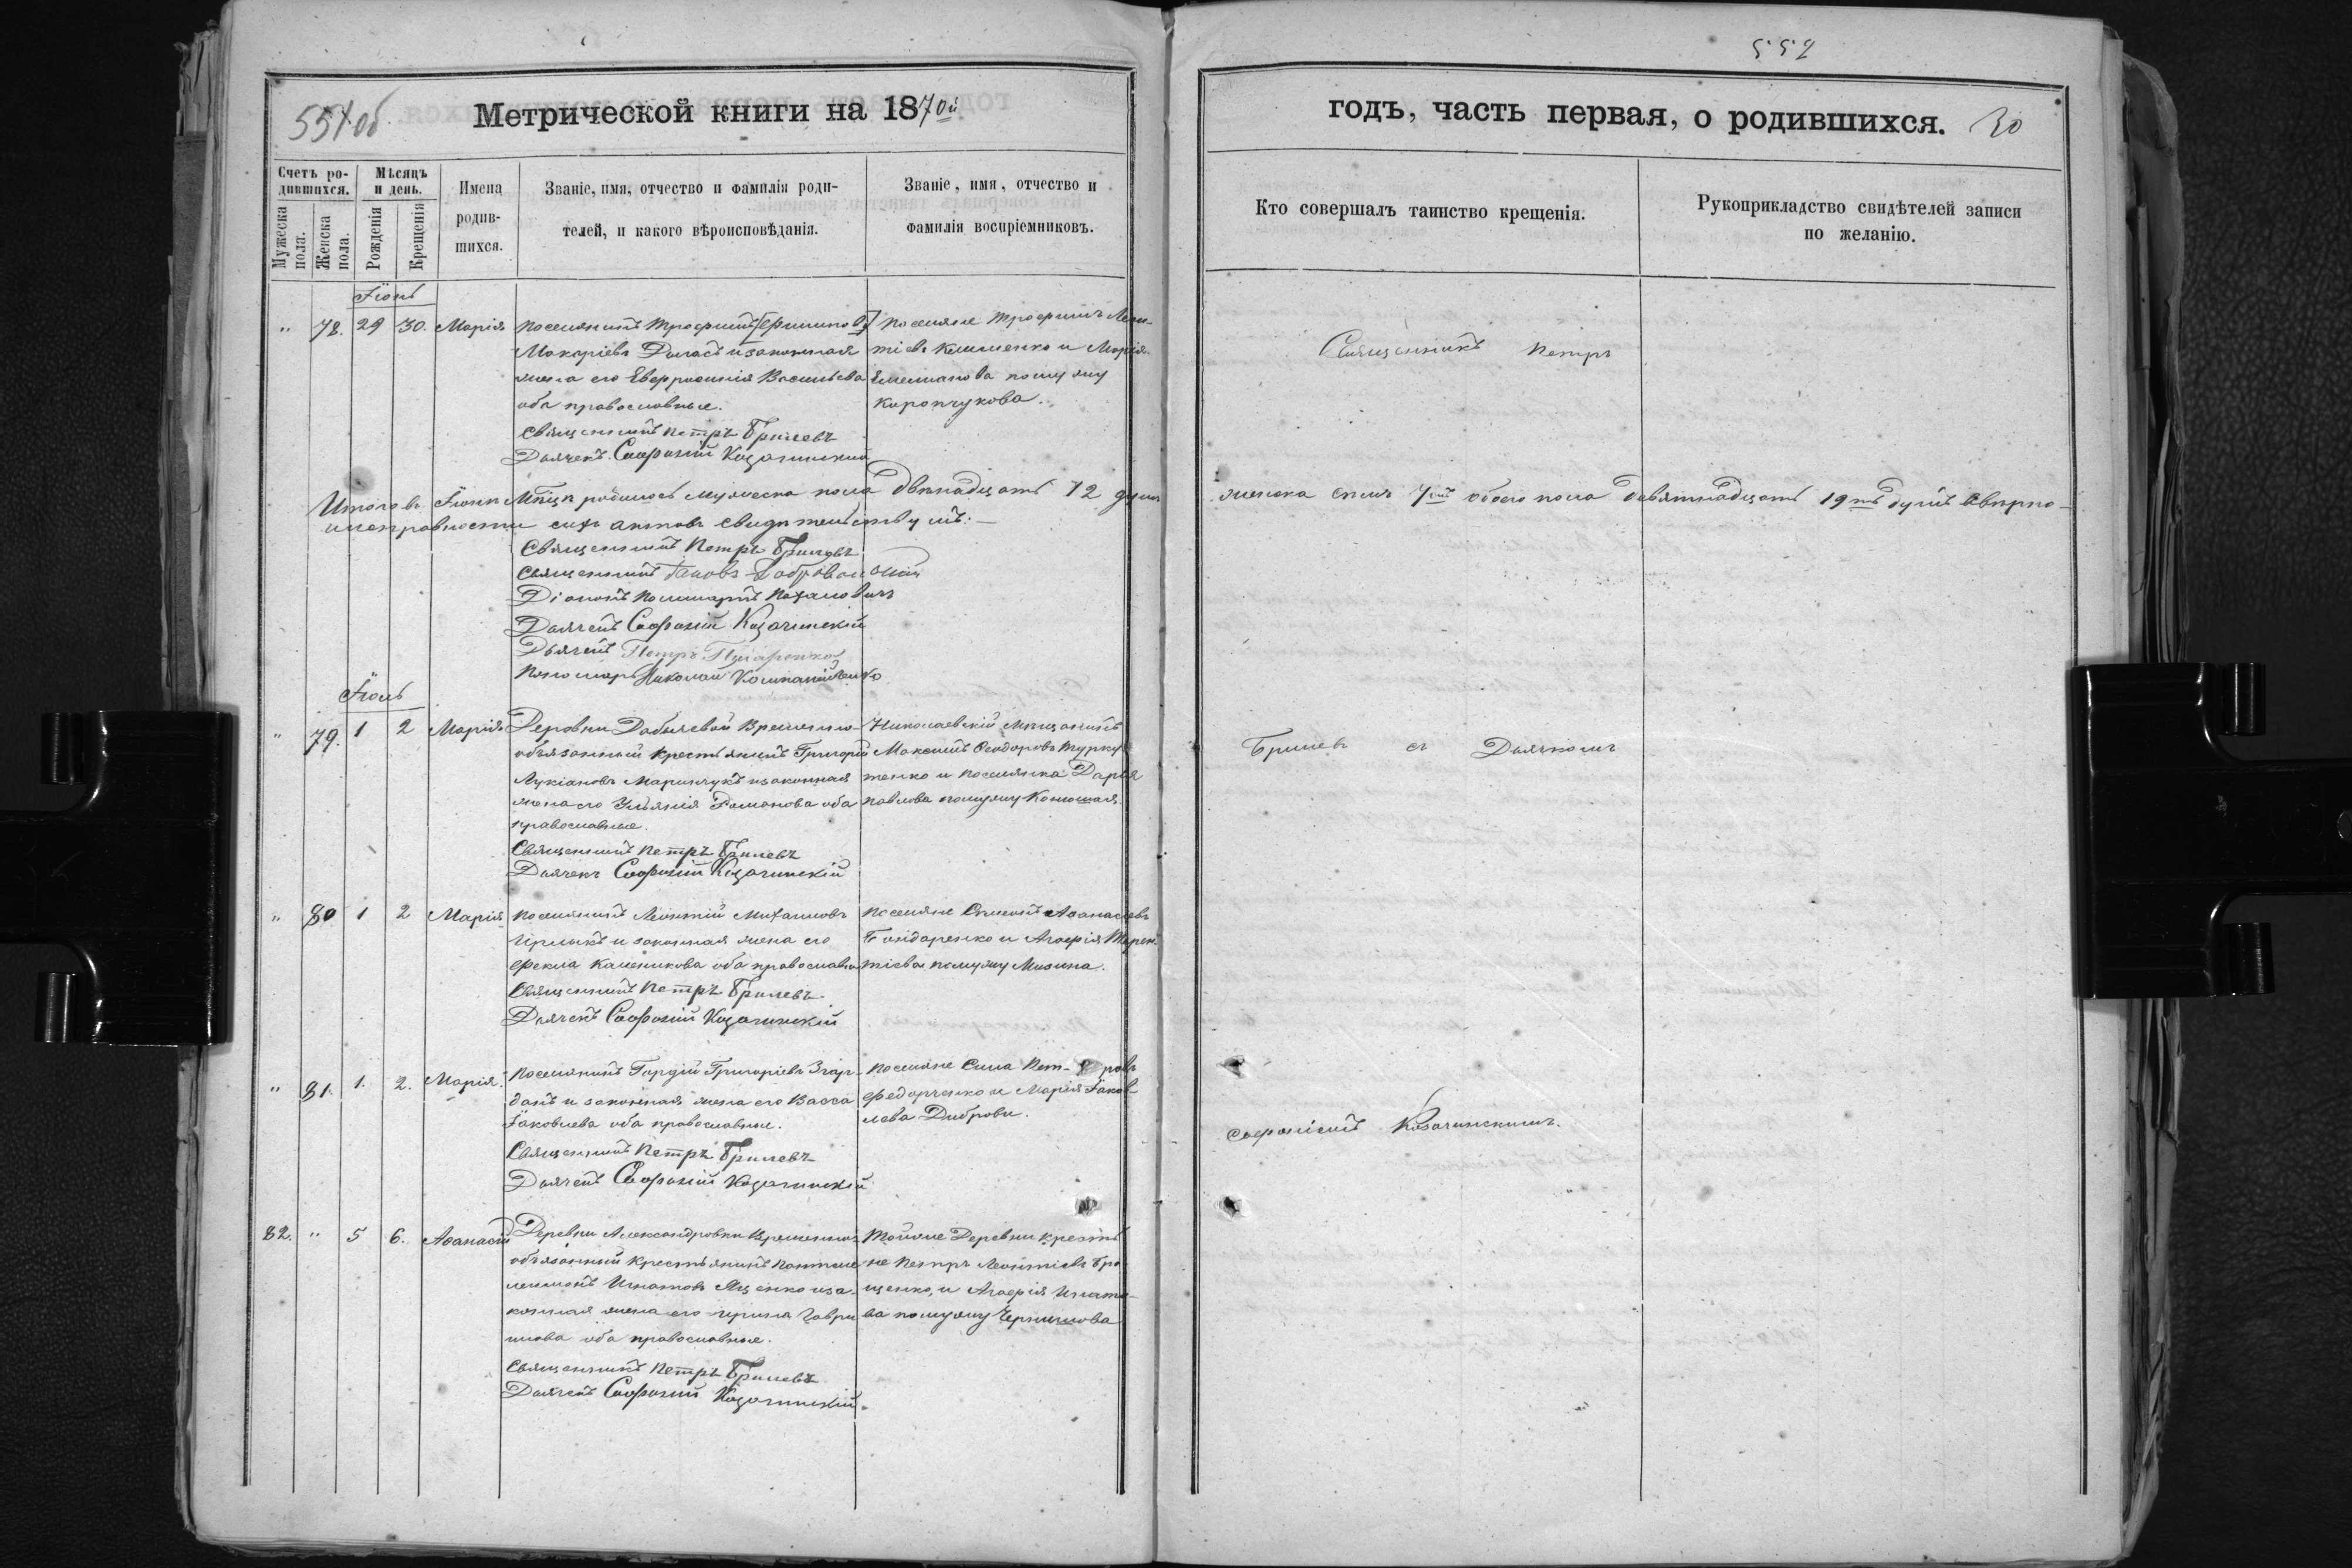 552
551 об.
Метрической книги на 1870й
годъ, часть первая, о родившихся. 30
Счетъ ро-
дившихся.
Мѣсяцъ
и день.
Мужеска пола.
Женска пола.
Рожденія
Крещенія
Имена
родив-
шихся.
Званіе, имя, отчество и фамилія роди-
телей, и какого вѣроисповѣданія.
Званіе, имя, отчество и
фамилія воспріемниковъ.
Кто совершалъ таинство крещенія.
Рукоприкладство свидѣтелей записи
по желанію.
Іюнь
" 78. 29 30. Марія
поселянинъ Трофимъ
Макаріевъ и законная
жена его Евфросинія Васильева
оба православные.
Священникъ Петръ Брилевъ
Дьячекъ Софроній Козачинскій
поселяне Трофимъ Леон-
тіевъ Клименко и Марія
Емельянова по мужу
Священникъ Петръ
Итого въ Іюнѣ Мѣсяцѣ родилось мужеска пола двѣнадцать 12 душъ
женска семь 7мь обоего пола девятнадцать 19ть душъ О вѣрно-
сти сихъ актовъ свидѣтельствуемъ:—
Священникъ Петръ Брилевъ
Священникъ Іаковъ
Діаконъ
Дьячекъ Софроній Козачинскій
Дьячекъ Петръ
Пономарь Николай Компанійченко
Іюль
" 79. 1 2 Марія
Деревни Временно-
обязанный крестьянинъ Григорій
Лукіановъ Маринчукъ и законная
жена его Романова оба
православные.
Священникъ Петръ Брилевъ
Дьячекъ Софроній Козачинскій
Николаевскій мѣщанинъ
Максимъ Ѳеодоровъ
и поселянка Дарья
Павлова по мужу
Брилевъ съ Дьячкомъ
" 80 1 2 Марія
поселянинъ Леонтій Михаиловъ
и законная жена его
Ѳекла оба православные
Священникъ Петръ Брилевъ.
Дьячекъ Софроній Козачинскій
поселяне Аѳанасіевъ
Бондаренко и Агафія Терен-
тіева по мужу
" 81. 1. 2. Марія.
поселянинъ Гордій Григоріевъ
и законная жена его Васса
Іаковлева оба православные.
Священникъ Петръ Брилевъ
Дьячекъ Софроній Козачинскій
поселяне Сила Пет-ровъ
Федорченко и Марія Іаков-
лева Диброва.
Софроніемъ Козачинскимъ.
82. " 5 6. Аѳанасій
Деревни Александровки Временно
обязанный крестьянинъ Пантеле
имонъ Игнатовъ Яценко и за-
конная жена его Ирина Гаври
илова оба православные.
Священникъ Петръ Брилевъ
Дьячекъ Софроній Козачинскій.
Тойже Деревни крестья
не Петръ Леонтіевъ
и Агафія Игнато-
ва по мужу